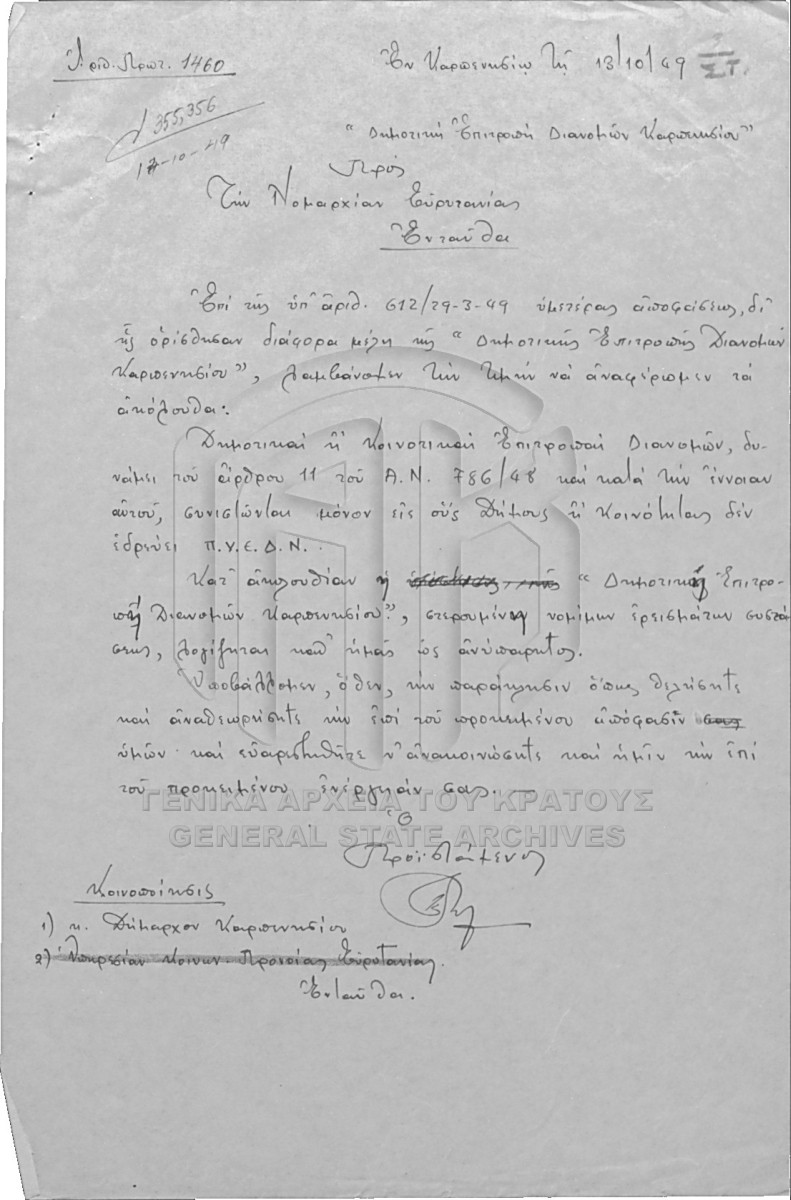 Ἀριθ. Πρωτ. 1460
Ἐν Καρπενησίῳ τῇ 13/10/49
ΣΤ.
355,356
17-10-49
"Δημοτικὴ Ἐπιτροπὴ Διανομῶν Καρπενησίου"
Πρὸς
Τὴν Νομαρχίαν Εὐρυτανίας
Ἐνταῦθα
Ἐπὶ τῆς ὑπ' ἀριθ. 612/29-3-49 ὑμετέρας ἀποφάσεως, δι'
ἧς ὁρίσθησαν διάφορα μέλη τῆς "Δημοτικῆς Ἐπιτροπῆς Διανομῶν
Καρπενησίου", λαμβάνομεν τὴν τιμὴν νὰ ἀναφέρωμεν τὰ
ἀκόλουθα:
Δημοτικαὶ ἢ Κοινοτικαὶ Ἐπιτροπαὶ Διανομῶν, δυ-
νάμει τοῦ ἄρθρου 11 τοῦ Α.Ν. 786/48 καὶ κατὰ τὴν ἔννοιαν
αὐτοῦ, συνιστῶνται μόνον εἰς οὓς Δήμους ἢ Κοινότητας δὲν
ἑδρεύει Π.Υ.Ε.Δ.Ν.
Κατ' ἀκολουθίαν ἡ "Δημοτικὴ Ἐπιτρο-
πὴ Διανομῶν Καρπενησίου", στερουμένη νομίμων ἐρεισμάτων συστά-
σεως, λογίζηται καθ' ἡμᾶς ὡς ἀνύπαρκτος.
Ὑποβάλλομεν, ὅθεν, τὴν παράκλησιν ὅπως θελήσητε
καὶ ἀναθεωρήσητε τὴν ἐπὶ τοῦ προκειμένου ἀπόφασιν σας
ὑμῶν καὶ εὐαρεστηθῆτε ν' ἀνακοινώσητε καὶ ἡμῖν τὴν ἐπὶ
τοῦ προκειμένου ἐνέργειάν σας.—
ΓΕΝΙΚΑ ΑΡΧΕΙΑ ΤΟΥ ΚΡΑΤΟΥΣ
GENERAL STATE ARCHIVES
Ὁ
Προϊστάμενος
Κοινοποίησις
1) κ. Δήμαρχον Καρπενησίου
2) Ὑπηρεσίαν Κοινων. Προνοίας Εὐρυτανίας.
Ἐνταῦθα.